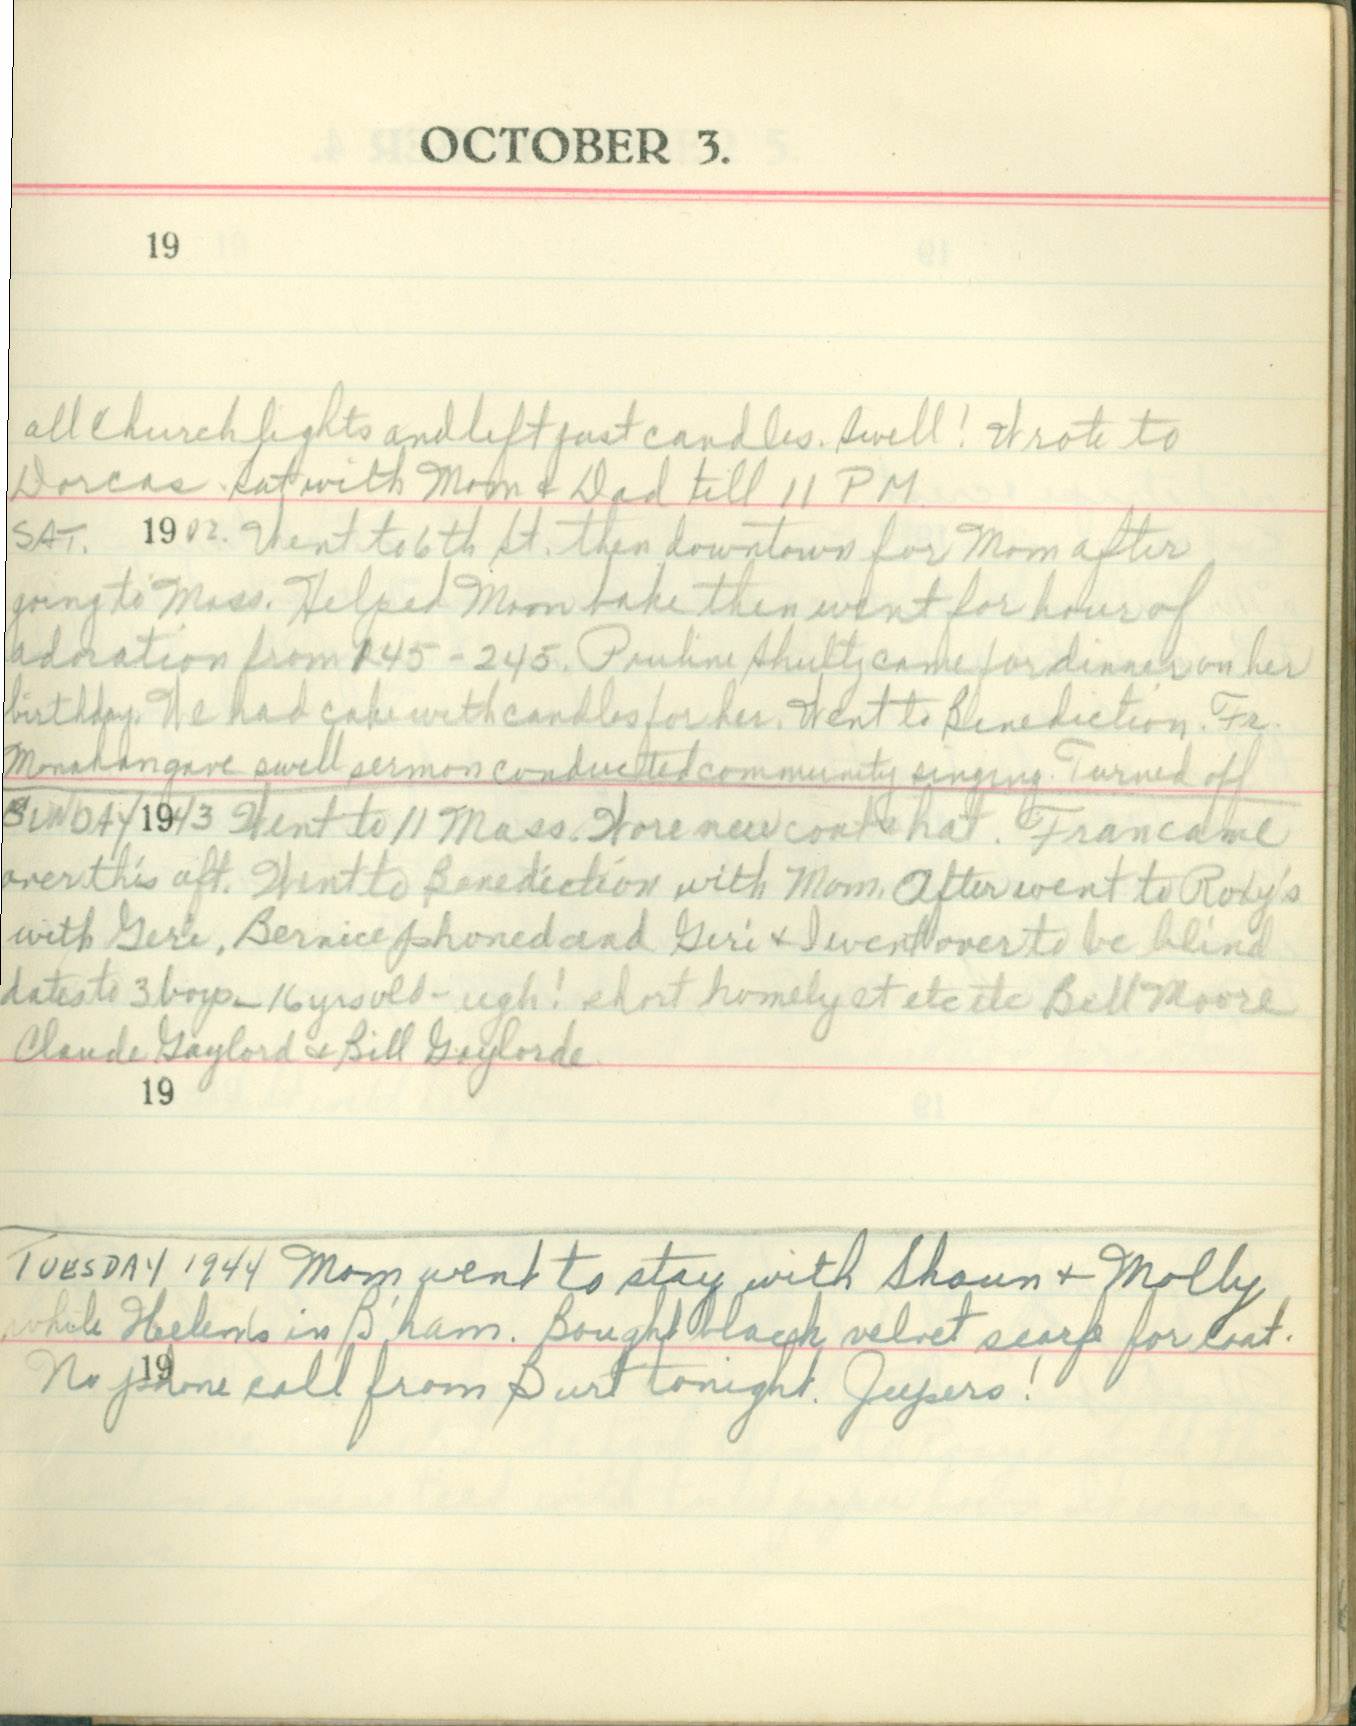 OCTOBER 3.
19
all Church lights and left just candles. Swell! Wrote to
Dorcas. Sat with Mom & Dad till 11 PM
SAT. 19 Went to 6th St. then downtown for Mom after
going to Mass. Helped Mom bake then went for hour of
adoration from 145 - 245. Pauline Shultz came for dinner on her
birthday. We had cake with candles for her. Went to Benediction. Fr.
Monahan gave swell sermon conducted community singing. Turned off
SUNDAY 1943 Went to 11 Mass. Wore new coat & hat. Fran came
over this aft. Went to Benediction with Mom. After went to Roxy's
with Geri, Bernice phoned and Geri & I went over to be blind
dates to 3 boys - 16 yrs old - ugh! short homely et etc etc Bill Moore
Claude Gaylord & Bill Gaylorde
19
TUESDAY 1944 Mom went to stay with Shaun & Molly
while Helen's in B'ham. Bought black velvet scarf for coat.
19
No phone call from Burt tonight. Jeepers!